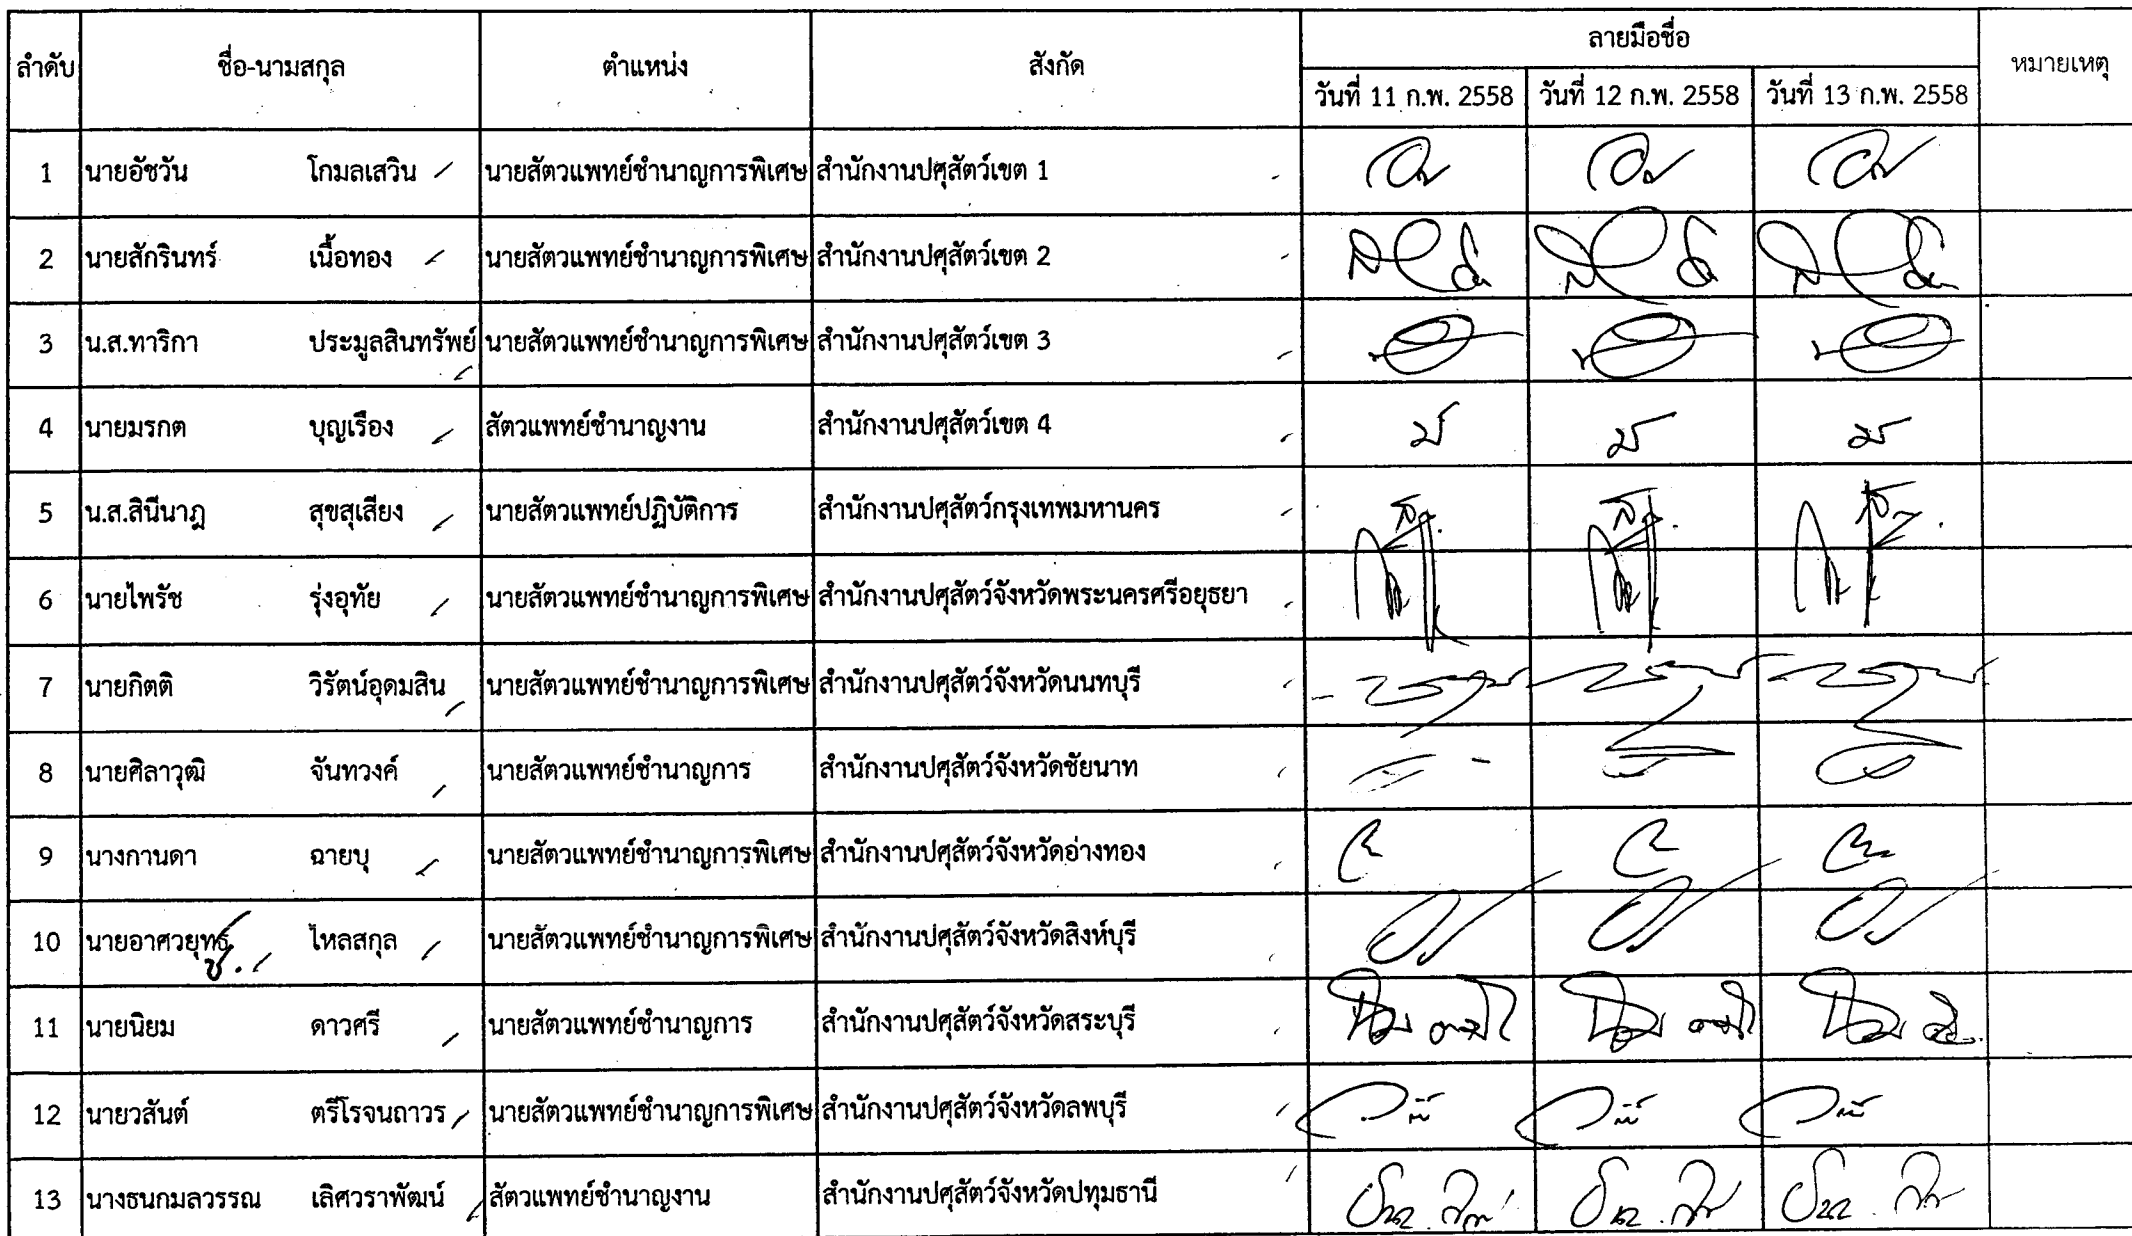 ลำดับ ชื่อ-นามสกุล ตำแหน่ง สังกัด ลายมือชื่อ หมายเหตุ
วันที่ 11 ก.พ. 2558 วันที่ 12 ก.พ. 2558 วันที่ 13 ก.พ. 2558
1 นายอัชวัน โกมลเสวิน นายสัตวแพทย์ชำนาญการพิเศษ สำนักงานปศุสัตว์เขต 1
2 นายสักรินทร์ เนื้อทอง นายสัตวแพทย์ชำนาญการพิเศษ สำนักงานปศุสัตว์เขต 2
3 น.ส.ทาริกา ประมูลสินทรัพย์ นายสัตวแพทย์ชำนาญการพิเศษ สำนักงานปศุสัตว์เขต 3
4 นายมรกต บุญเรือง สัตวแพทย์ชำนาญงาน สำนักงานปศุสัตว์เขต 4
5 น.ส.สินีนาฎ สุขสุเสียง นายสัตวแพทย์ปฏิบัติการ สำนักงานปศุสัตว์กรุงเทพมหานคร
6 นายไพรัช รุ่งอุทัย นายสัตวแพทย์ชำนาญการพิเศษ สำนักงานปศุสัตว์จังหวัดพระนครศรีอยุธยา
7 นายกิตติ วิรัตน์อุดมสิน นายสัตวแพทย์ชำนาญการพิเศษ สำนักงานปศุสัตว์จังหวัดนนทบุรี
8 นายศิลาวุฒิ จันทวงค์ นายสัตวแพทย์ชำนาญการ สำนักงานปศุสัตว์จังหวัดชัยนาท
9 นางกานดา ฉายบุ นายสัตวแพทย์ชำนาญการพิเศษ สำนักงานปศุสัตว์จังหวัดอ่างทอง
10 นายอาศวยุทธ์ ไหลสกุล นายสัตวแพทย์ชำนาญการพิเศษ สำนักงานปศุสัตว์จังหวัดสิงห์บุรี
11 นายนิยม ดาวศรี นายสัตวแพทย์ชำนาญการ สำนักงานปศุสัตว์จังหวัดสระบุรี
12 นายวสันต์ ตรีโรจนถาวร นายสัตวแพทย์ชำนาญการพิเศษ สำนักงานปศุสัตว์จังหวัดลพบุรี
13 นางธนกมลวรรณ เลิศวราพัฒน์ สัตวแพทย์ชำนาญงาน สำนักงานปศุสัตว์จังหวัดปทุมธานี